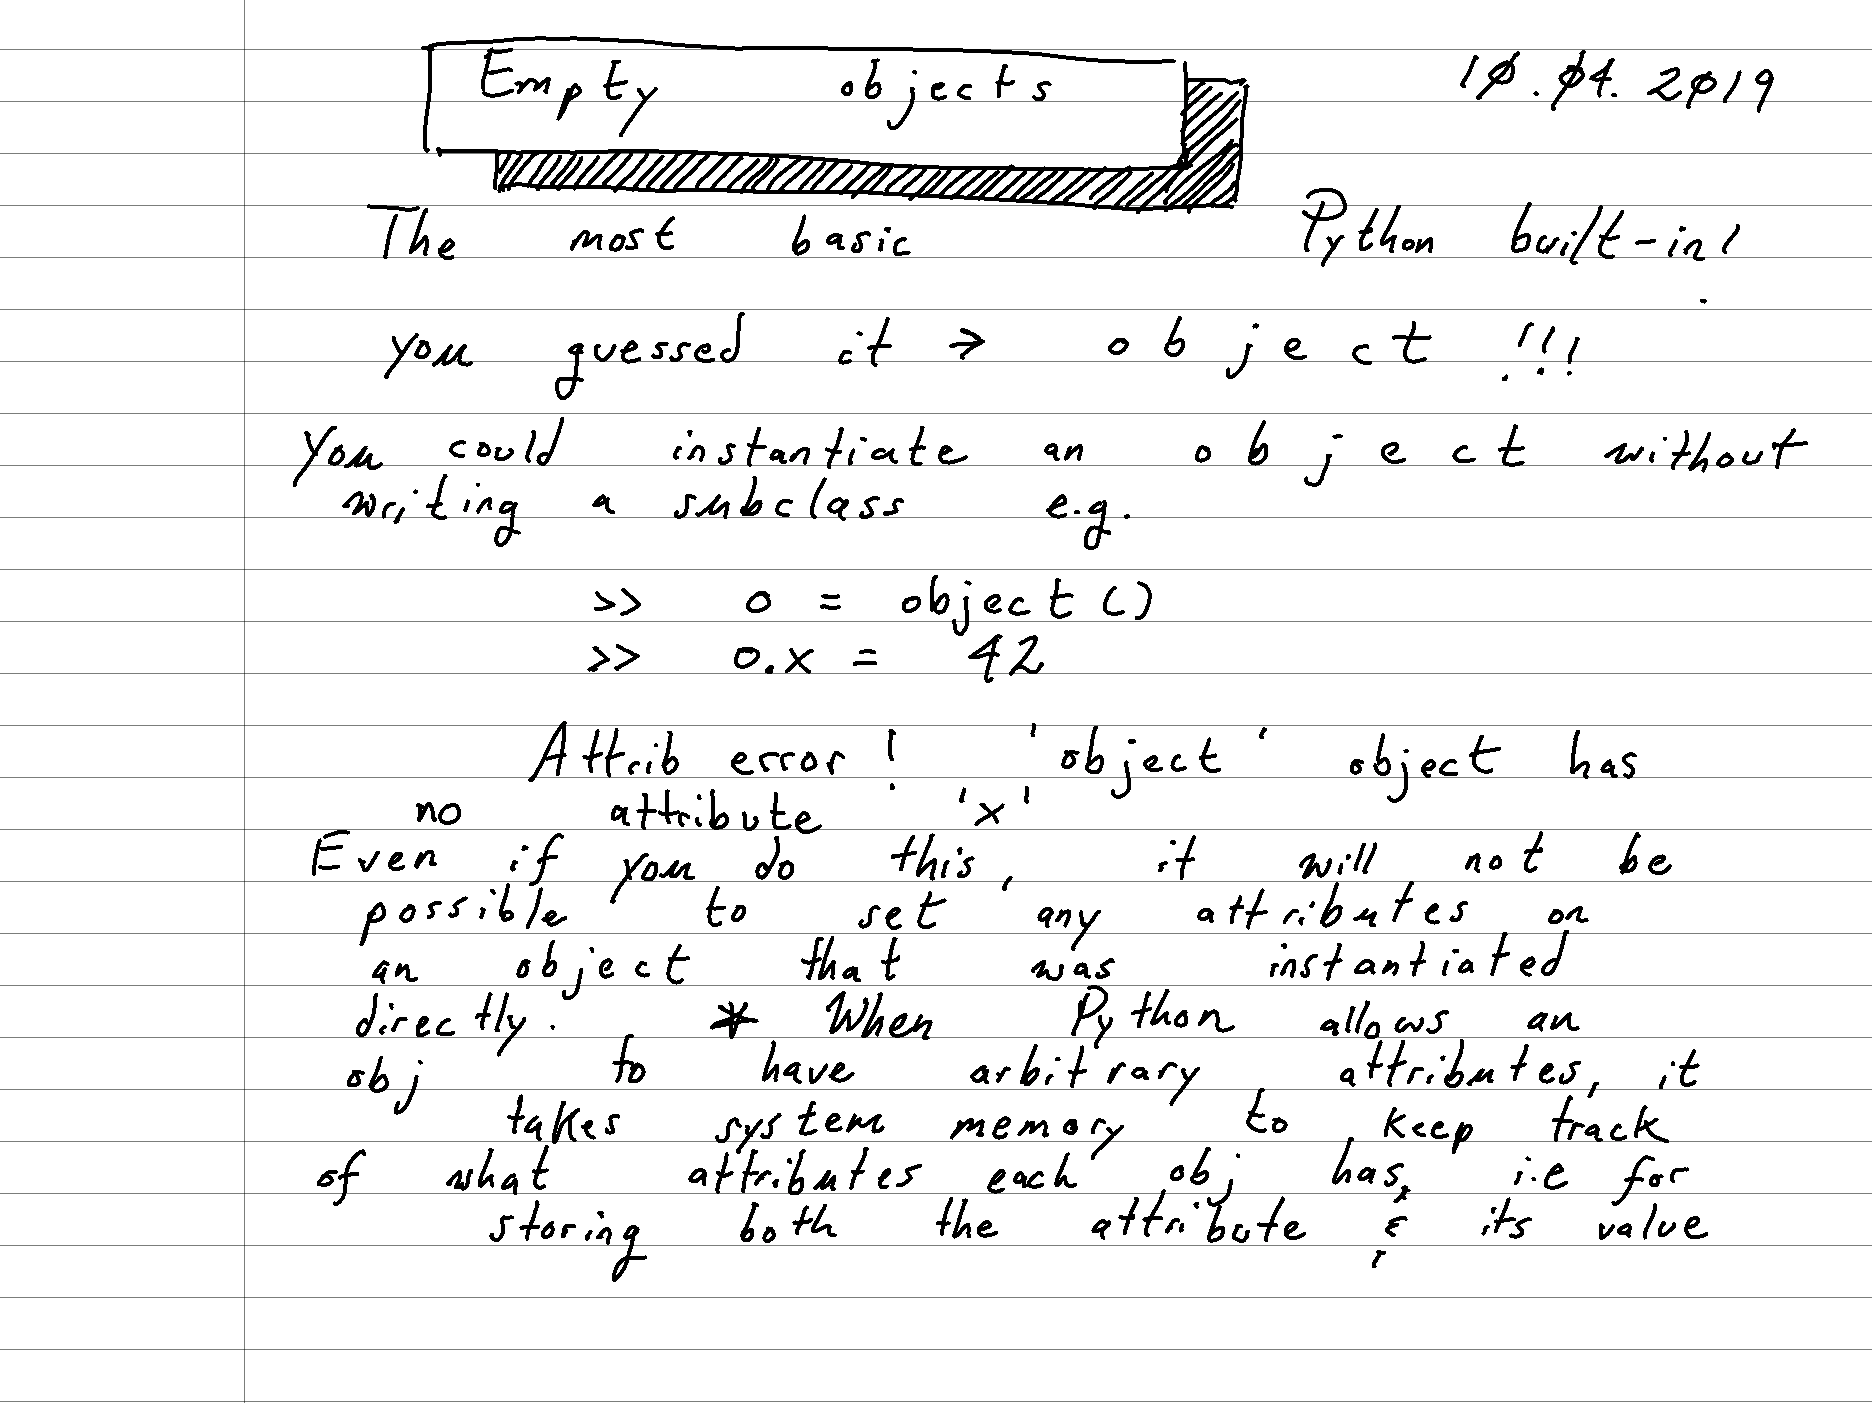 Empty objects 10.04.2019
The most basic Python built-in!
you guessed it → object !!!
You could instantiate an object without
writing a subclass e.g.
>> o = object()
>> o.x = 42
Attrib error! 'object' object has
no attribute 'x'
Even if you do this, it will not be
possible to set any attributes on
an object that was instantiated
directly. * When Python allows an
obj to have arbitrary attributes, it
takes system memory to keep track
of what attributes each obj has, i.e for
storing both the attribute & its value